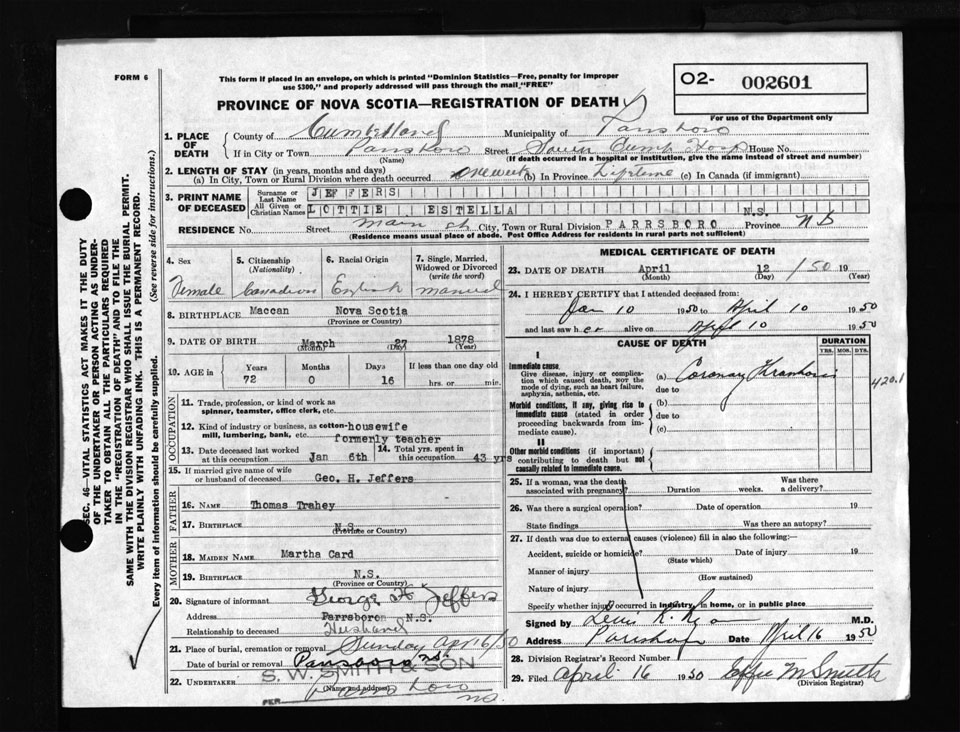 FORM 6
This form if placed in an envelope, on which is printed "Dominion Statistics—Free, penalty for improper
use $300," and properly addressed will pass through the mail "FREE"
PROVINCE OF NOVA SCOTIA—REGISTRATION OF DEATH
O2- 002601
For use of the Department only
1. PLACE OF DEATH
County of Cumberland Municipality of Parrsboro
If in City or Town Parrsboro Street South Cumb Hosp House No.
(Name) (If death occurred in a hospital or institution, give the name instead of street and number)
2. LENGTH OF STAY (in years, months and days)
(a) In City, Town or Rural Division where death occurred one week (b) In Province Lifetime (c) In Canada (if immigrant)
3. PRINT NAME OF DECEASED
Surname or Last Name JEFFERS
All Given or Christian Names LOTTIE ESTELLA
RESIDENCE No. Street Main St City, Town or Rural Division PARRSBORO Province N.S.
(Residence means usual place of abode. Post Office Address for residents in rural parts not sufficient)
4. Sex
Female
5. Citizenship (Nationality)
Canadian
6. Racial Origin
English
7. Single, Married, Widowed or Divorced (write the word)
married
8. BIRTHPLACE Maccan Nova Scotia
(Province or Country)
9. DATE OF BIRTH March 27 1878
(Month) (Day) (Year)
10. AGE in Years Months Days If less than one day old
72 0 16 hrs. or min.
OCCUPATION
11. Trade, profession, or kind of work as
spinner, teamster, office clerk, etc.
12. Kind of industry or business, as cotton-housewife
mill, lumbering, bank, etc. formerly teacher
13. Date deceased last worked at this occupation Jan 6th
14. Total yrs. spent in this occupation 43 yrs
15. If married give name of wife
or husband of deceased Geo. H. Jeffers
FATHER
16. NAME Thomas Trahey
17. BIRTHPLACE N.S.
(Province or Country)
MOTHER
18. MAIDEN NAME Martha Card
19. BIRTHPLACE N.S.
(Province or Country)
20. Signature of informant George H Jeffers
Address Parrsboro N.S.
Relationship to deceased Husband
21. Place of burial, cremation or removal
Sunday Apr 16/50
Date of burial or removal Parrsboro NS
S. W. SMITH & SON
22. UNDERTAKER
(Name and address)
PER
Parrsboro
NS.
MEDICAL CERTIFICATE OF DEATH
23. DATE OF DEATH April 12 /50 19
(Month) (Day) (Year)
24. I HEREBY CERTIFY that I attended deceased from:
Jan 10 1950 to April 10 1950
and last saw her alive on April 10 1950
CAUSE OF DEATH
DURATION
YRS. MOS. DYS.
I
Immediate cause.
Give disease, injury or complica-
tion which caused death, not the
mode of dying, such as heart failure,
asphyxia, asthenia, etc.
(a) Coronary Thrombosis
420.1
due to
Morbid conditions, if any, giving rise to
immediate cause (stated in order
proceeding backwards from im-
mediate cause).
(b)
due to
(c)
II
Other morbid conditions (if important)
contributing to death but not
causally related to immediate cause.
25. If a woman, was the death
associated with pregnancy? Duration weeks. Was there a delivery?
26. Was there a surgical operation? Date of operation 19
State findings Was there an autopsy?
27. If death was due to external causes (violence) fill in also the following:—
Accident, suicide or homicide? Date of injury 19
(State which)
Manner of injury
(How sustained)
Nature of injury
Specify whether injury occurred in industry, in home, or in public place
Signed by M.D.
Address Parrsboro Date April 16 1950
28. Division Registrar's Record Number
29. Filed April 16 1950 Effie M Smith
(Division Registrar)
SEC. 46—VITAL STATISTICS ACT MAKES IT THE DUTY
OF THE UNDERTAKER OR PERSON ACTING AS UNDER-
TAKER TO OBTAIN ALL THE PARTICULARS REQUIRED
IN THE "REGISTRATION OF DEATH" AND TO FILE THE
SAME WITH THE DIVISION REGISTRAR WHO SHALL ISSUE THE BURIAL PERMIT.
WRITE PLAINLY WITH UNFADING INK. THIS IS A PERMANENT RECORD.
Every item of information should be carefully supplied. (See reverse side for instructions.)